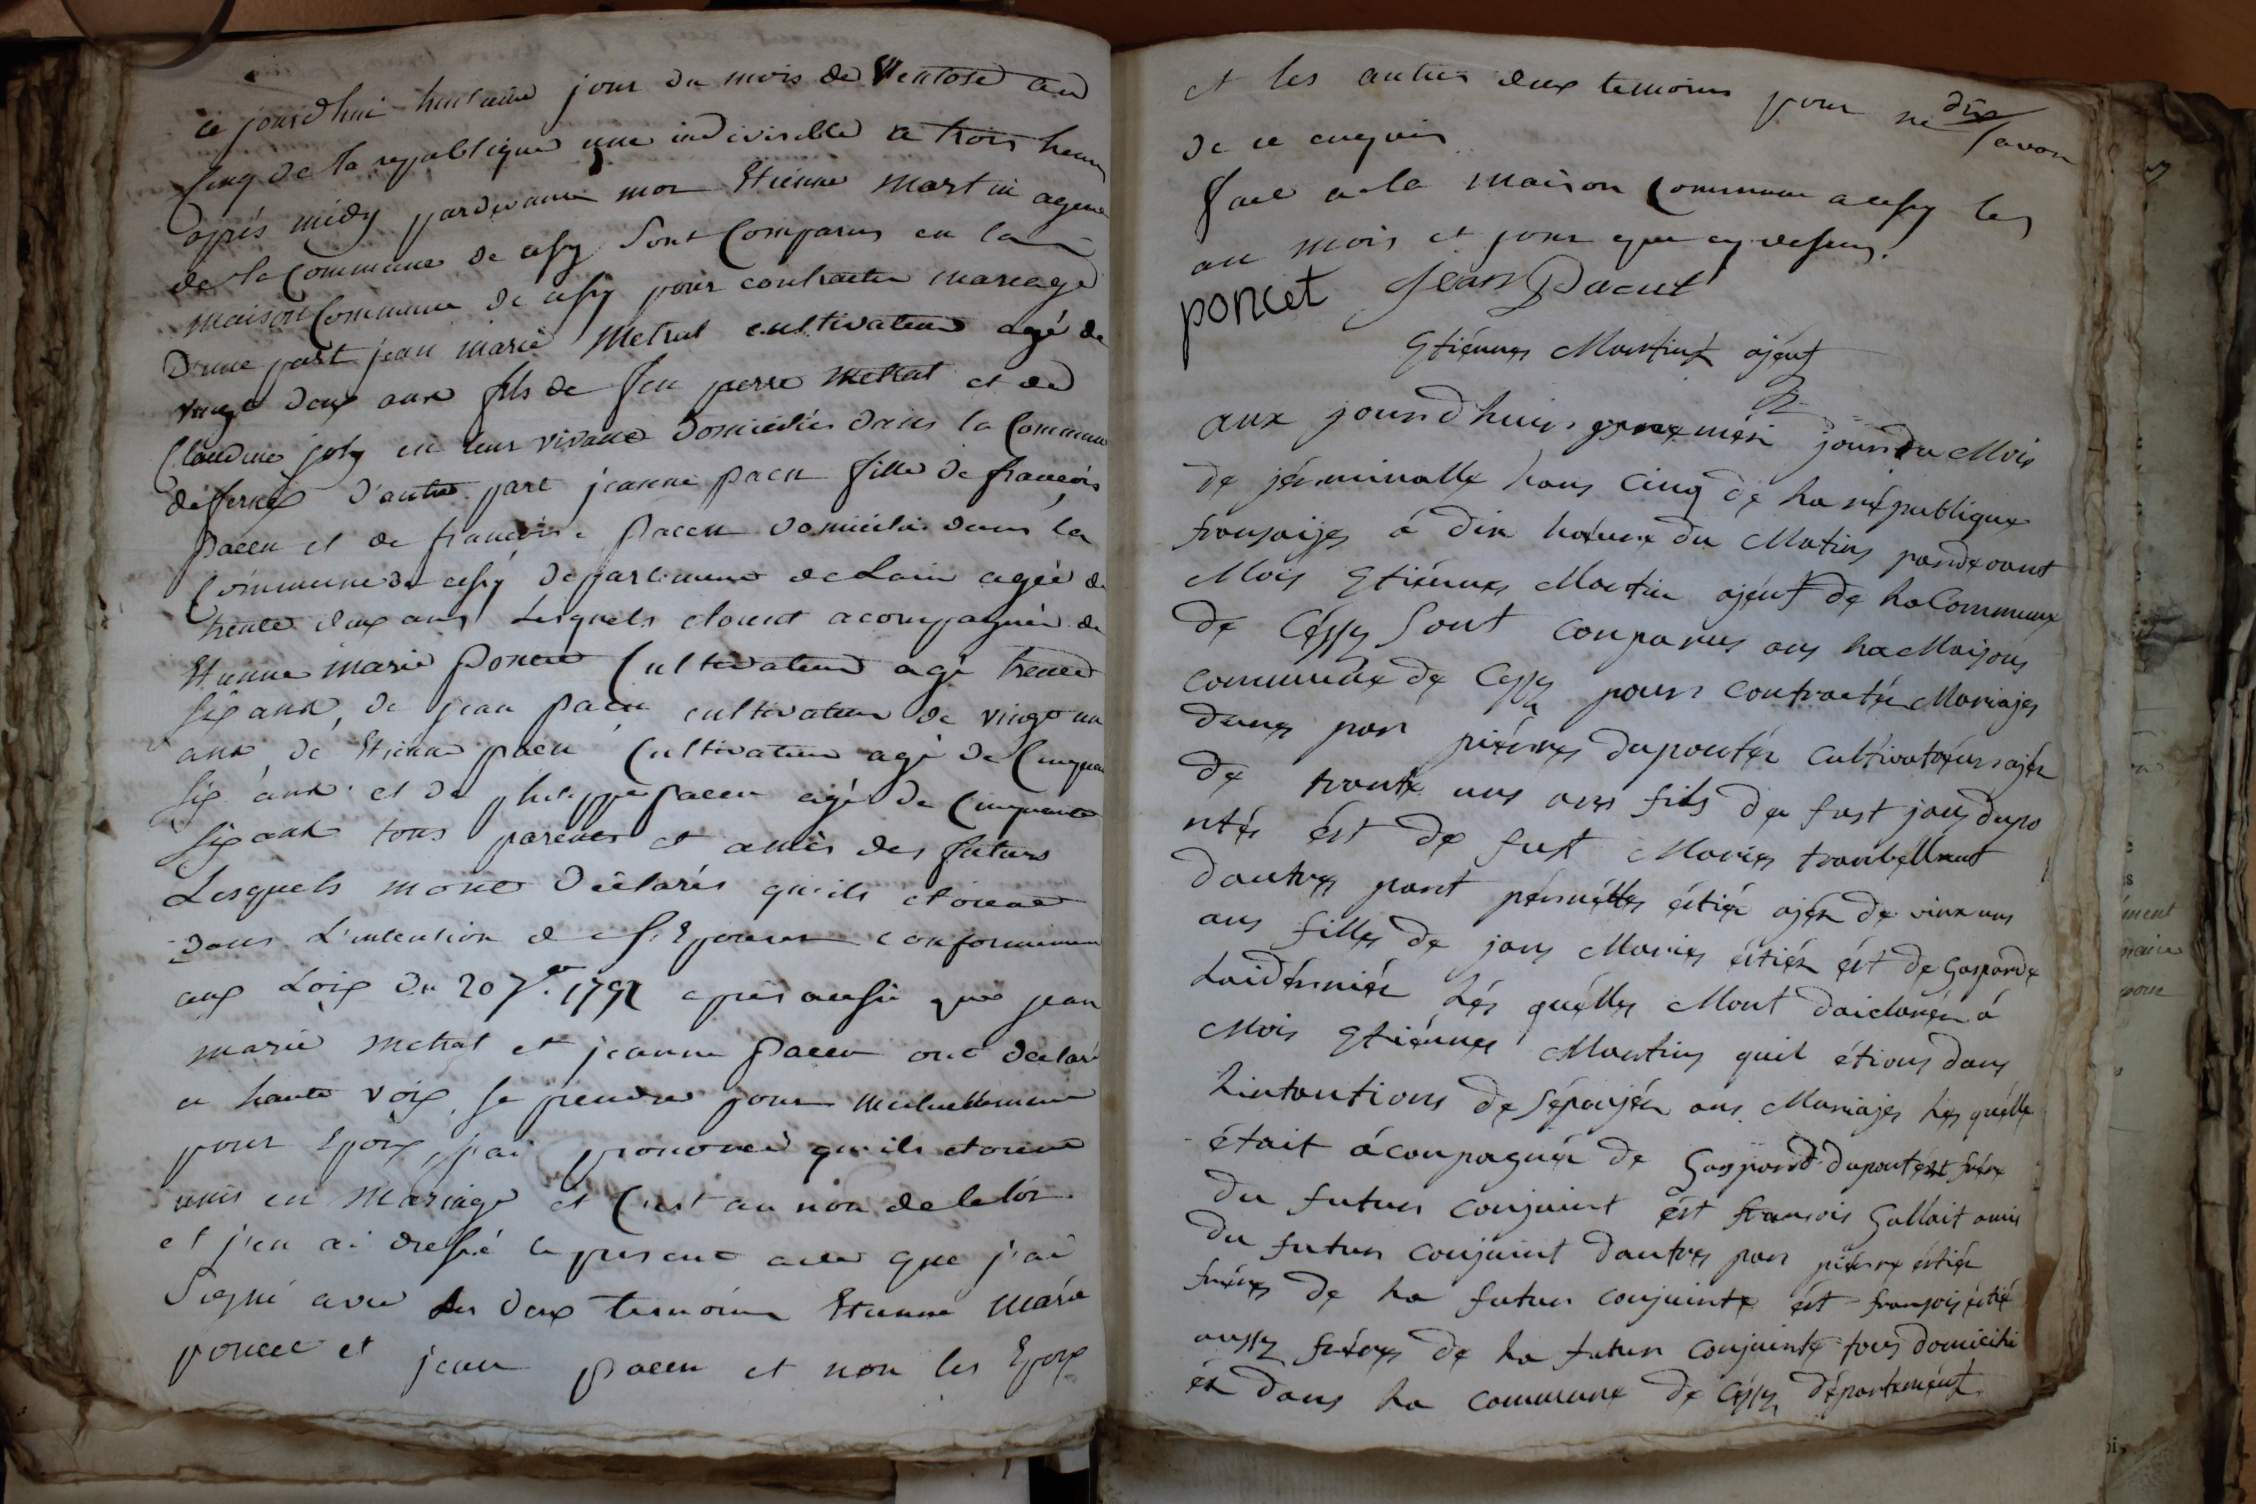 ce jourdhui huitaine jour du mois de Ventose lan
cinq de la republique une indivisible a trois heure
après midy pardevant moi Etienne Martin agent
de la Commune de cessy sont Comparus en la
maison Commune de cessy pour contracter mariage
D'une part jean marie Metral cultivateur agé de
vingt deux ans fils de feu pierre Metral et de
Claudine joly en leur vivant Domiciliés dans la Commune
de fernex D'autre part jeanne pacn fille de françois
pacu et de françoise pacu domicilié dans la
Commune de cessy departement de Lain agée de
trente deux ans Lesquels etoient acompagnée de
Etienne marie Poncet Cultivateur agé trente
six ans, de jean pacu cultivateur de vingt un
ans, de Etienne pacu Cultivateur agé de Cinquan
six ans et de philippe pacu agé de Cinquante
six ans tous parents et amis des futurs
Lesquels mont déclarés qu'ils etoient
Dans L'intention de s'Epouser conformément
aux Loix du 20 7bre 1792 après aussi que jean
marie Metral et jeanne pacu ont déclaré
a haute voix se prendre pour mutuellement
pour Epoux, j'ai prononcé qu'ils etoient
unis en mariage et C'est au non de la loi
et j'en ai dressé le present acte que j'ai
Signé avec les deux temoins Etienne marie
poncet et jean pacu et non les Epoux
et les autres deux temoins pour ne savoir
dix
de ce enquis
fait a la maison Commune a cessy les
an mois et jour que cy dessus.
poncet Jean Pacut
Etiennes Martins ajent
aux jourdhuis premier jour du Mois
de jérminalle lans cinq de la république
fransaises á dix haeure du Matins pardevant
Mois Etiénnes Martin ajent de la Commune
de Céssy Sont conparus ans la Maisons
commune de Cessy pours contracter Mariajes
dunes par piérres dupontér cultivatéurs ajér
de trante uns ans fils du fust jans dupo
ntér ést de fust Maries tranbellant
dautres part pérnétte éstiér ajér de vinx uns
ans filles de jans Maries éstiér ést de Gasparde
laidérniér Lés quélles Mont daiclarér á
Mois Etiénnes Martins quil étions dans
Lintantions de Sépoujér ans Mariajes les quélle
était áconpagnér de Gaspard dupontér frére
du futur conjoint ést fransois Gallait amis
du futur conjoint dautres par piérre éstiér
frére de la futur conjointe ést fransois éstié
aussy fréres de la futur conjointe tous domicili
ér dans la commune de Céssy département